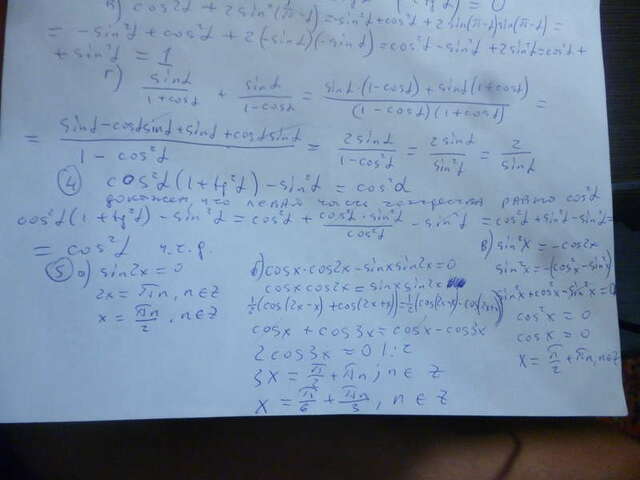 в) cos2α + 2sin²(π-α) = -sin²α + cos²α + 2sin(π-α)sin(π-α) =
= -sin²α + cos²α + 2(-sinα)(-sinα) = cos²α - sin²α + 2sin²α = cos²α +
+ sin²α = 1
г) sinα/(1+cosα) + sinα/(1-cosα) = (sinα·(1-cosα) + sinα(1+cosα))/((1-cosα)(1+cosα)) =
= (sinα - cosαsinα + sinα + cosαsinα)/(1-cos²α) = 2sinα/(1-cos²α) = 2sinα/sin²α = 2/sinα
④ cos²α(1+tg²α) - sin²α = cos²α
докажем, что левая часть тождества равно cos²α
cos²α(1+tg²α) - sin²α = cos²α + (cos²α·sin²α)/cos²α - sin²α = cos²α + sin²α - sin²α =
= cos²α ч.т.д.
⑤ а) sin2x = 0
2x = πn, n∈Z
x = πn/2, n∈Z
б) cosx·cos2x - sinxsin2x = 0
cosxcos2x = sinxsin2x
½(cos(2x-x) + cos(2x+x)) = ½(cos(2x-x) - cos(2x+x))
cosx + cos3x = cosx - cos3x
2cos3x = 0 |:2
3x = π/2 + πn; n∈Z
x = π/6 + πn/3, n∈Z
в) sin²x = -cos2x
sin²x = -(cos²x - sin²x)
sin²x + cos²x - sin²x = 0
cos²x = 0
cosx = 0
x = π/2 + πn, n∈Z